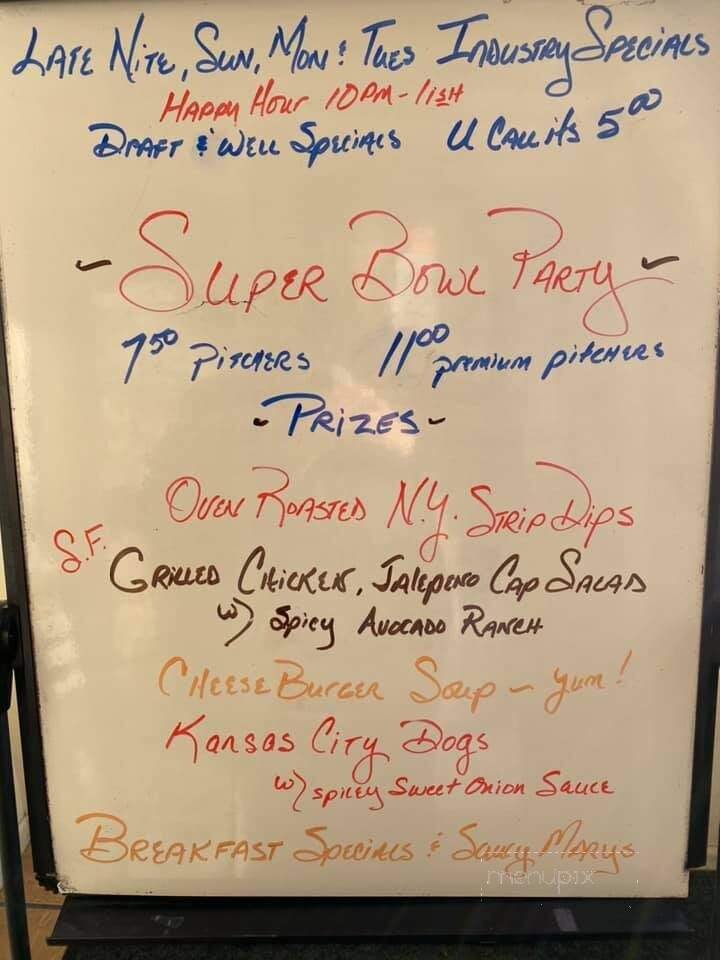 Late Nite, Sun, Mon & Tues Industry Specials
Happy Hour 10pm - 11ish
Draft & Well Specials U Call its 5.00
- Super Bowl Party -
7.50 Pitchers 11.00 premium pitchers
- Prizes -
Oven Roasted N.Y. Strip Dips
S.F. Grilled Chicken, Jalepeno Cap Salad
w/ Spicy Avocado Ranch
Cheese Burger Soup - yum!
Kansas City Dogs
w/ spicey Sweet Onion Sauce
Breakfast Specials & Saucy Marys
menupix